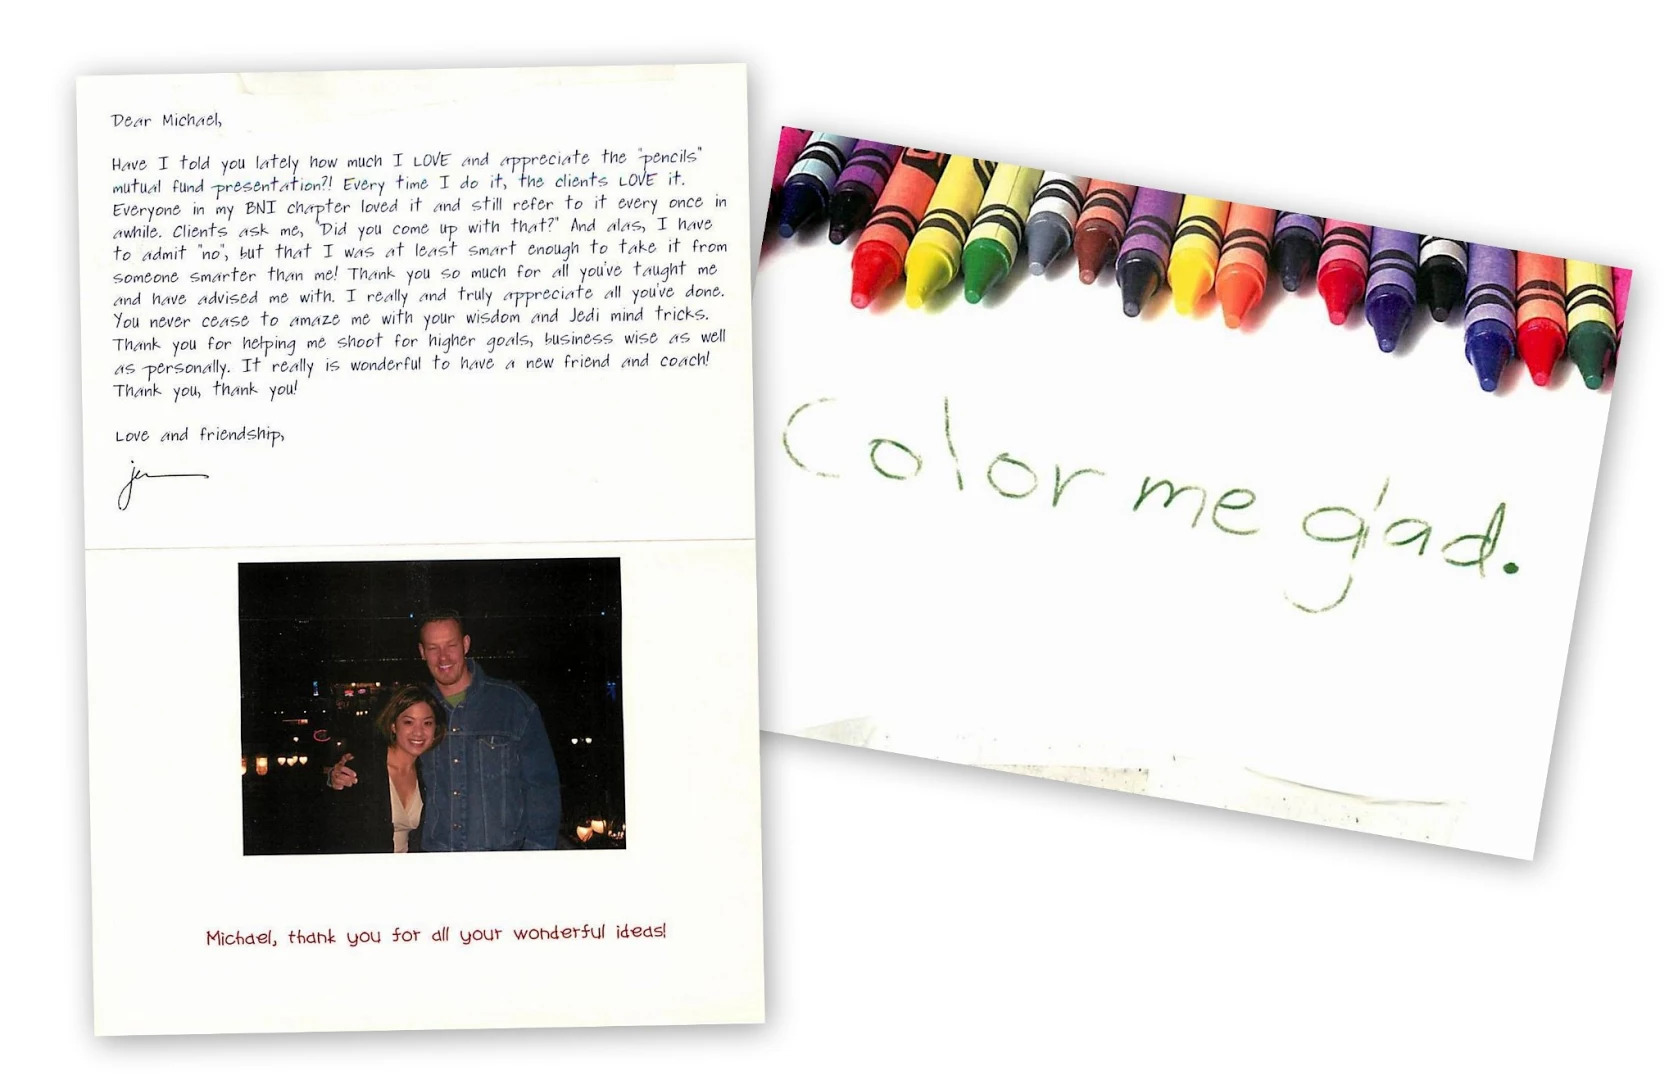 Dear Michael,
Have I told you lately how much I LOVE and appreciate the "pencils"
mutual fund presentation?! Every time I do it, the clients LOVE it.
Everyone in my BNI chapter loved it and still refer to it every once in
awhile. Clients ask me, "Did you come up with that?" And alas, I have
to admit "no", but that I was at least smart enough to take it from
someone smarter than me! Thank you so much for all you've taught me
and have advised me with. I really and truly appreciate all you've done.
You never cease to amaze me with your wisdom and Jedi mind tricks.
Thank you for helping me shoot for higher goals, business wise as well
as personally. It really is wonderful to have a new friend and coach!
Thank you, thank you!
Love and friendship,
jen
Michael, thank you for all your wonderful ideas!
Color me glad.